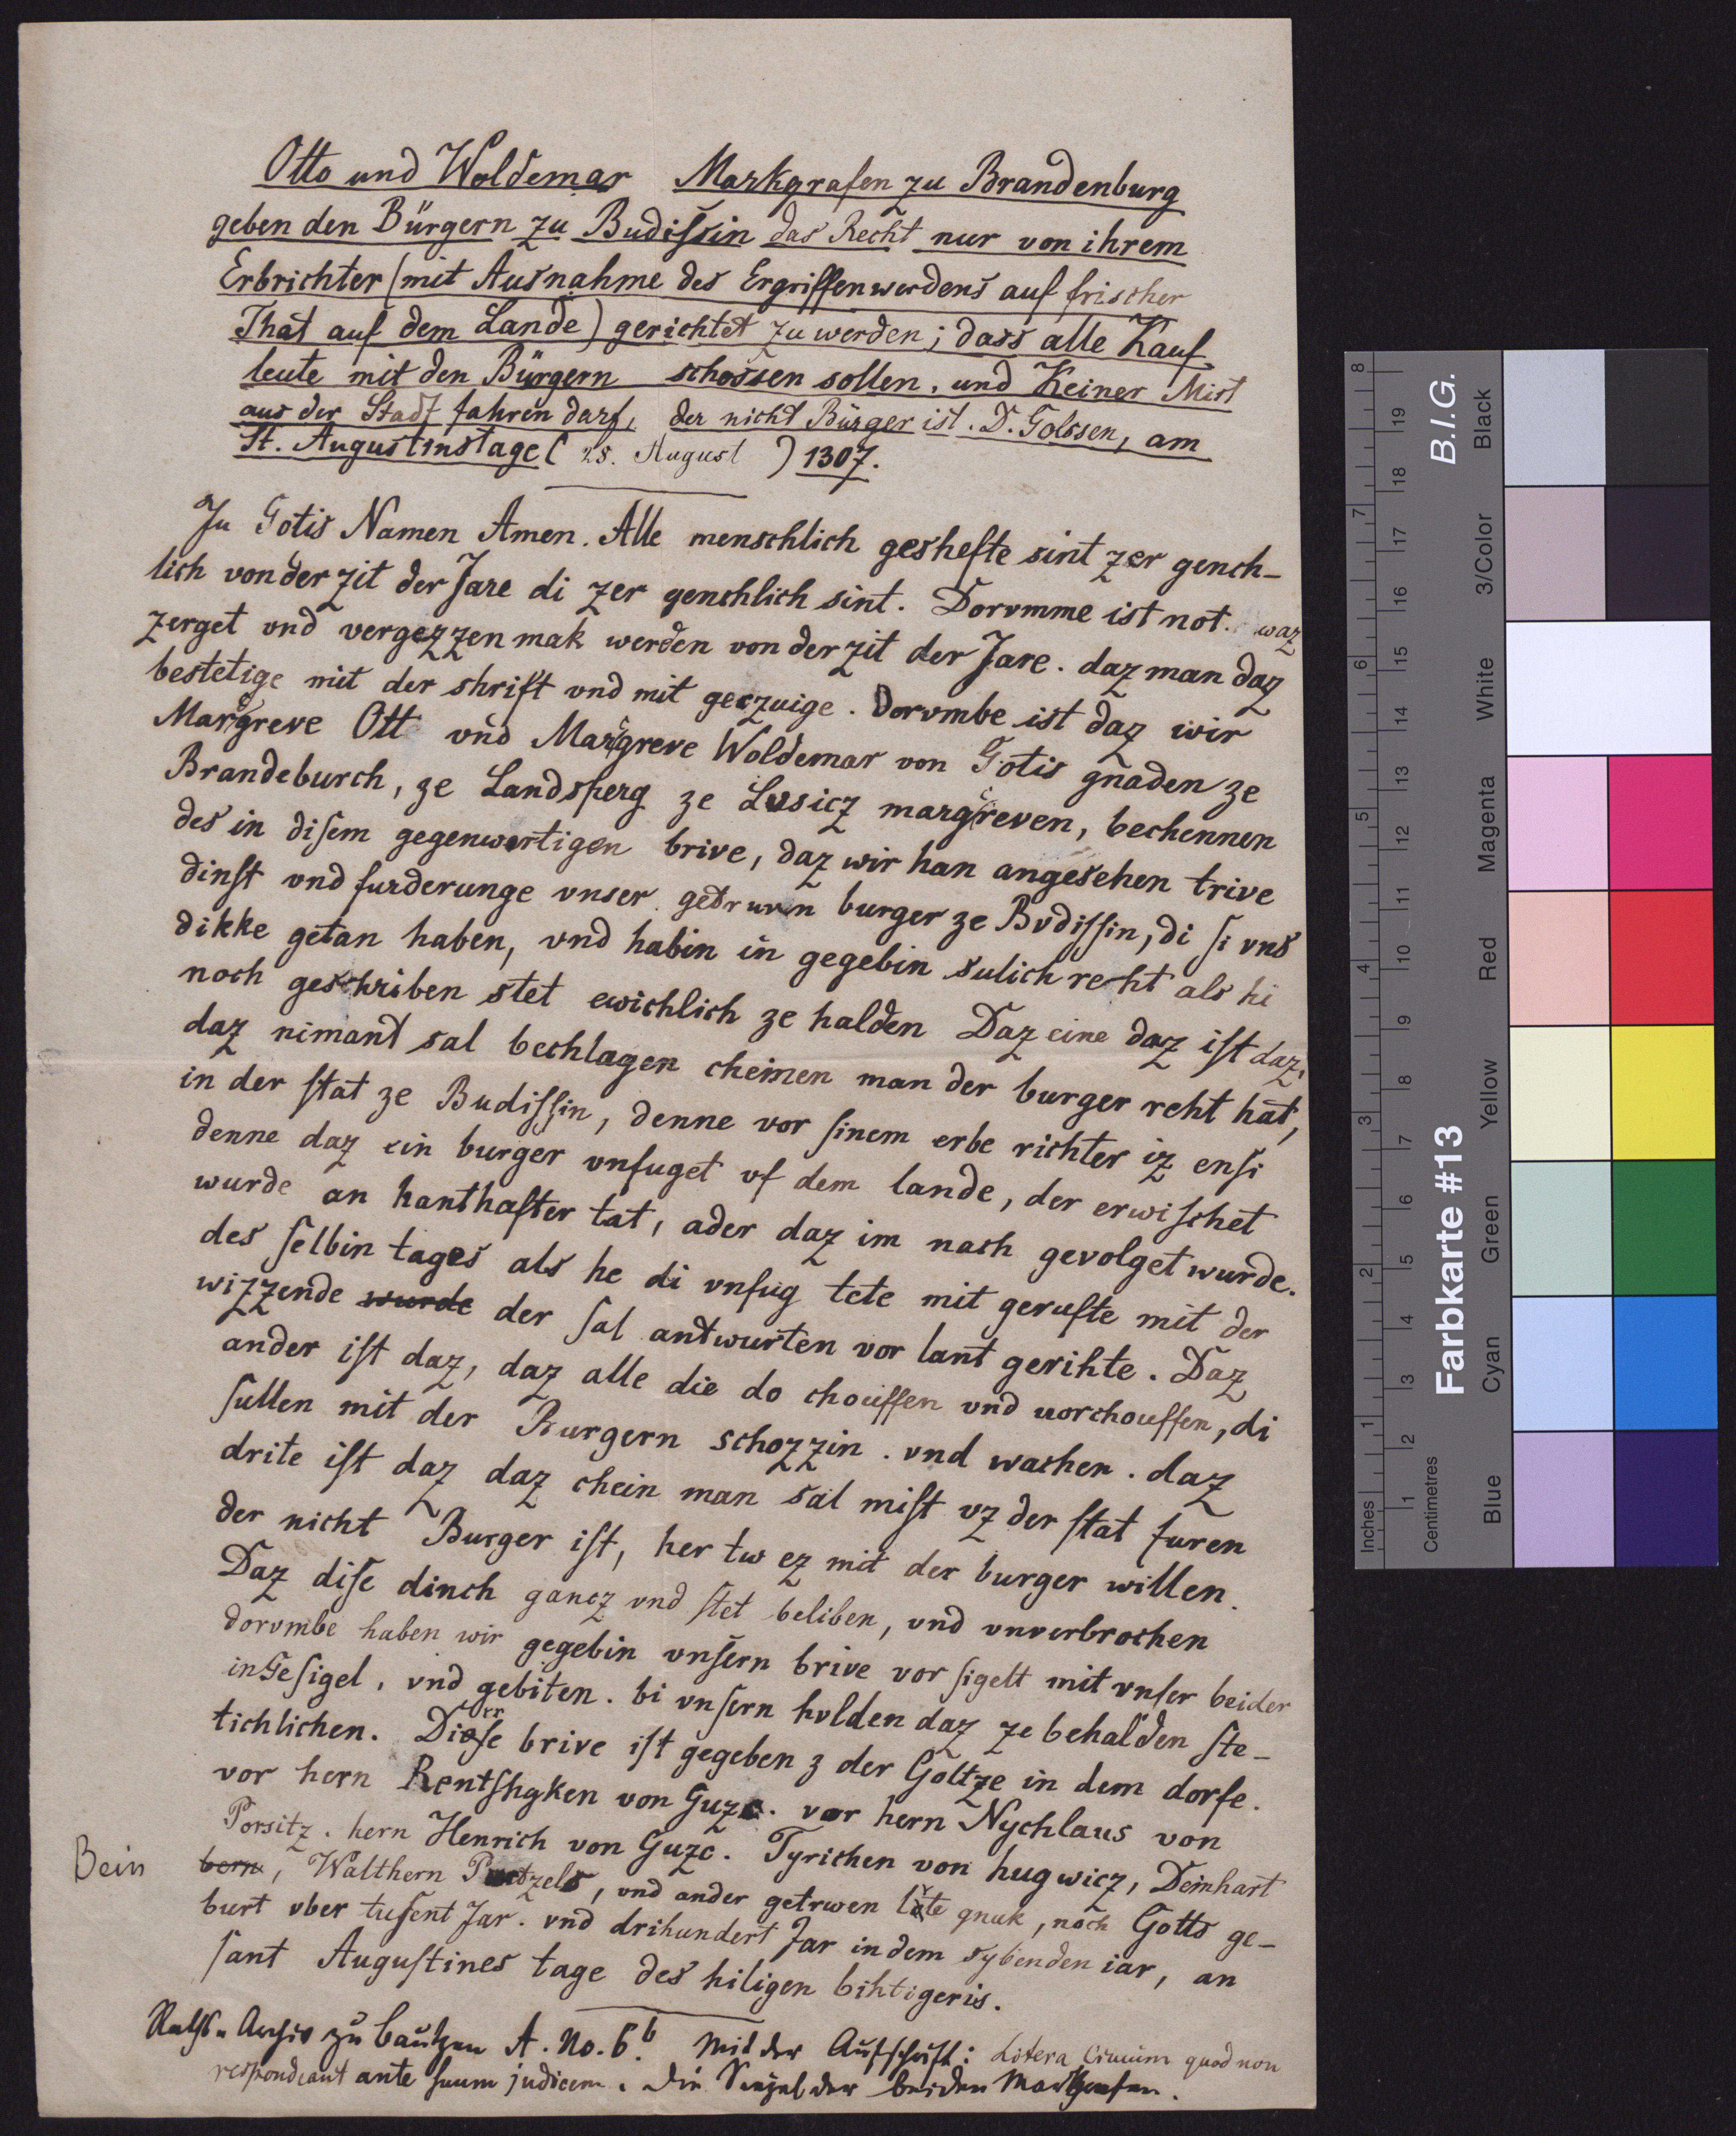 Otto und Woldemar Markgrafen zu Brandenburg
geben den Bürgern zu Budiſsin das Recht nur von ihrem
Erbrichter (mit Ausnahme des Ergriffenwerdens auf frischer
That auf dem Lande) gerichtet zu werden; dass alle Kauf-
leute mit den Bürgern schossen sollen, und Keiner Mist
aus der Stadt fahren darf, der nicht Bürger ist. D. Golssen, am
St. Augustinstage (28. August) 1307.
In Gotis Namen Amen. Alle menschlich geshefte sint zer gench-
lich von der zit der Jare di zer genchlich sint. Dorvmme ist not. waz
zerget vnd vergezzen mak werden von der zit der Jare. daz man daz
bestetige mit der shrift vnd mit geczuige. Dorvmbe ist daz wir
Margreve Ott vnd Margreve Woldemar von Gotis gnaden ze
Brandeburch, ze Landsperg ze Lusicz margreven, bechennen
des in diſem gegenwertigen brive, daz wir han angesehen trive
dinſt vnd furderunge vnser getruwn burger ze Bvdiſſin, di ſi vns
dikke getan haben, vnd habin in gegebin sulich reht als hi
noch geschriben stet ewichlich ze halden Daz eine daz iſt daz,
daz nimant sal bechlagen cheinen man der burger reht hat,
in der ſtat ze Budiſſin, denne vor ſinem erbe richter iz enſi
denne daz ein burger vnfuget vf dem lande, der erwiſchet
wurde an hanthafter tat, ader daz im nach gevolget wurde.
des ſelbin tages als he di vnfug tete mit gerufte mit der
wizzende wurde der ſal antwurten vor lant gerihte. Daz
ander iſt daz, daz alle die do chouffen vnd uorchouffen, di
ſullen mit der Burgern schozzin. vnd wachen. daz
drite iſt daz daz chein man sal miſt vz der ſtat furen
der nicht Burger iſt, her tw ez mit der burger willen.
Daz diſe dinch gancz vnd ſtet beliben, vnd vnverbrochen
dorvmbe haben wir gegebin vnſern brive vor ſigelt mit vnſer beider
inGeſigel, vnd gebiten. bi vnſern hvlden daz ze behalden ſte-
tichlichen. Dirre brive iſt gegeben z der Goltze in dem dorfe.
vor hern Rentshgken von Guzc. vor hern Nychlaus von
Porsitz. hern Henrich von Guzc. Tyrichen von hugwicz, Deinhart
Bein bern, Walthern, vnd ander getrwen lvte gnuk, noch Gotts ge-
burt vber tuſent Jar. vnd drihundert Jar in dem sybenden iar, an
ſant Auguſtines tage des hiligen bihtigeris.
Raths-Archiv zu Bautzen A. No. 6.b Mit der Aufschrift: Litera civium quod non
respondeant ante ſuum judicem. Die Siegel der beiden Markgrafen.